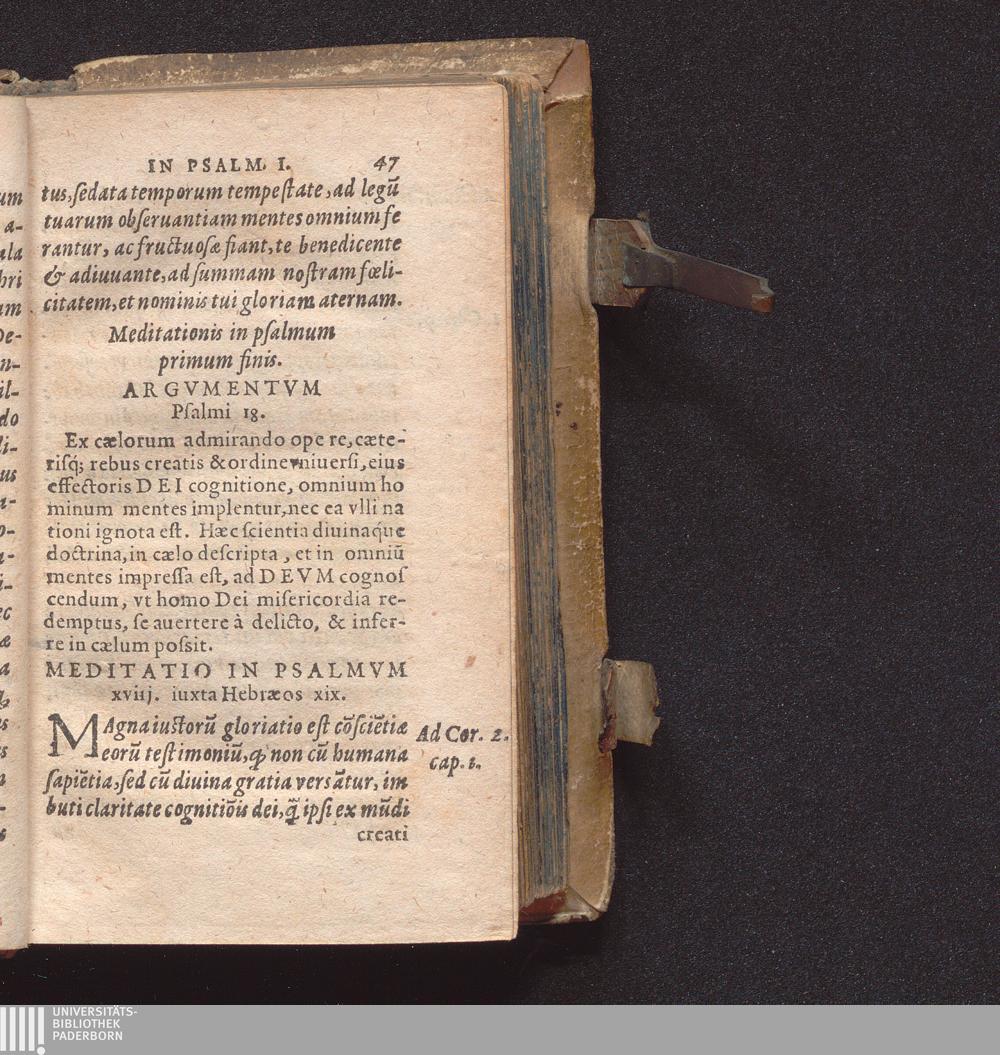 IN PSALM. I. 47
tus, ſedata temporum tempeſtate, ad legū
tuarum obſeruantiam mentes omnium fe
rantur, ac fructuoſæ fiant, te benedicente
& adiuuante, ad ſummam noſtram fœli-
citatem, et nominis tui gloriam aternam.
Meditationis in pſalmum
primum finis.
ARGVMENTVM
Pſalmi 18.
Ex cælorum admirando ope re, cæte-
riſq́; rebus creatis & ordine vniuerſi, eius
effectoris DEI cognitione, omnium ho
minum mentes implentur, nec ea vlli na
tioni ignota eſt. Hæc ſcientia diuinaque
doctrina, in cælo deſcripta, et in omniū
mentes impreſſa eſt, ad DEVM cognoſ
cendum, vt homo Dei miſericordia re-
demptus, ſe auertere à delicto, & infer-
re in cælum poſsit.
MEDITATIO IN PSALMVM
xviij. iuxta Hebræos xix.
MAgna iuſtorū gloriatio eſt cōſciētiæ
eorū teſtimoniū, ꝙ non cū humana
ſapiētia, ſed cū diuina gratia verſātur, im
buti claritate cognitiōis dei, q̄ ipſi ex mūdi
creati
Ad Cor. 2.
cap. 1.
um
a-
ala
bri
am
De-
n-
il-
do
li-
us
a-
o-
a-
i-
ec
æ
a
s
s
n
-
s
UNIVERSITÄTS-
BIBLIOTHEK
PADERBORN